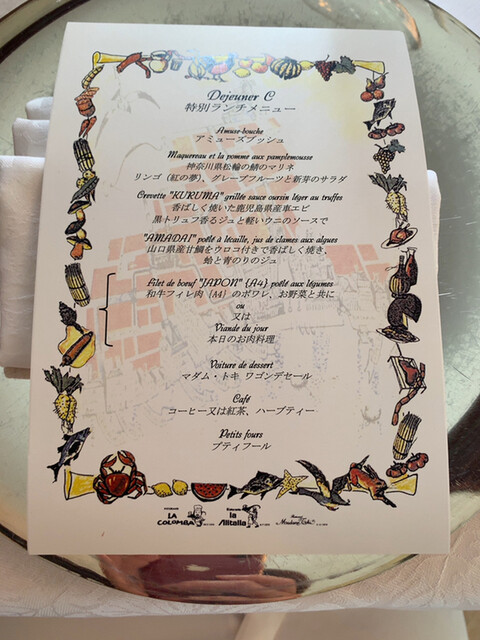 Dejeuner C
特別ランチメニュー
Amuse-bouche
アミューズブッシュ
Maquereau et la pomme aux pamplemousse
神奈川県松輪の鯖のマリネ
リンゴ（紅の夢）、グレープフルーツと新芽のサラダ
Crevette "KURUMA" grillée sauce oursin léger au truffes
香ばしく焼いた鹿児島県産車エビ
黒トリュフ香るジュと軽いウニのソースで
"AMADAI" poêlé à lécaille, jus de clames aux algues
山口県産甘鯛をウロコ付きで香ばしく焼き、
蛤と青のりのジュ
Filet de bœuf "JAPON" {A4} poêlé aux légumes
和牛フィレ肉 {A4} のポワレ、お野菜と共に
ou
又は
Viande du jour
本日のお肉料理
Voiture de dessert
マダム・トキ ワゴンデセール
Café
コーヒー又は紅茶、ハーブティー
Petits fours
プティフール
LA COLOMBA
la Alitalia
Madame Toki